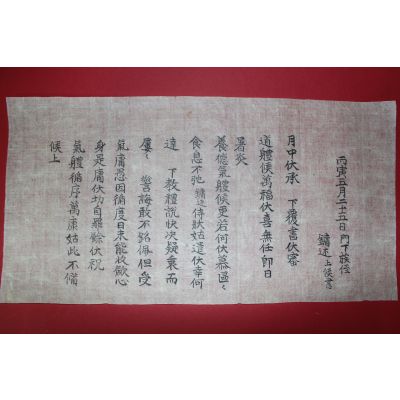 丙寅五月二十五日 門下族侄
述上候書
月中伏承 下覆書伏審
道體候萬福伏喜無任卽日
暑炎
養德氣體候更若何伏慕區〻
食息不弛 述侍狀姑遣伏幸何
達 下教禮說快次疑衷而
屢〻 警誨敢不銘佩但受
氣庸愚因循度日未能收斂心
身是庸伏切自罪餘伏祝
氣體循序萬康姑此不備
候上